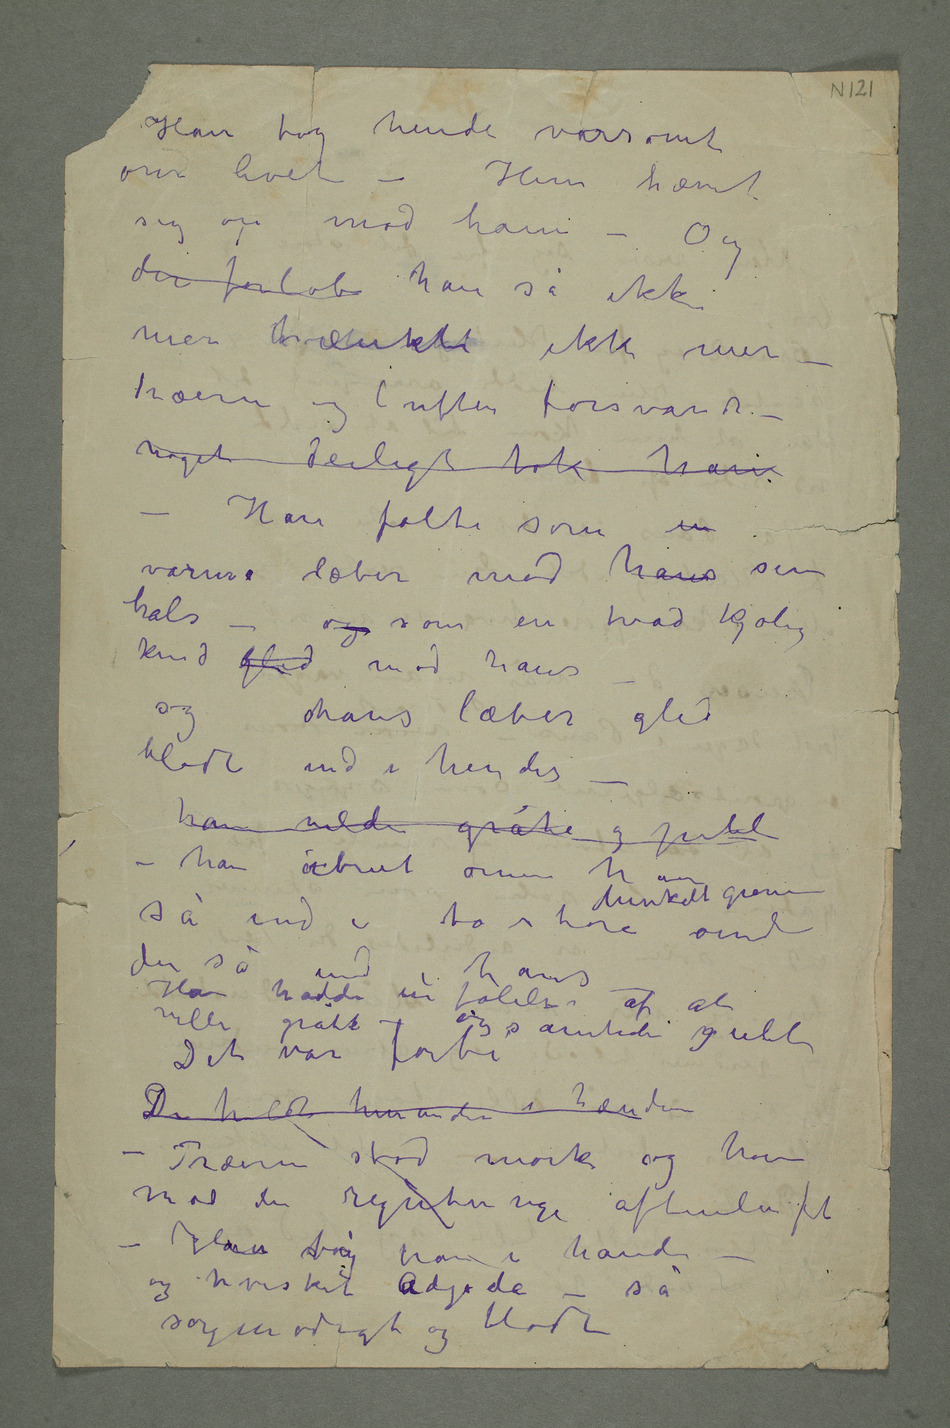 N121
Han tog hende varsomt
om livet – Hun hævet
sig op mod ham – Og
der forløb han så ikke
mer tænkte ikke mer –
Træerne og luften forsvandt –
noget deiligt tok ham
– Han følte som en
varme læber mod hans sin
hals – og som en våd kjølig
kind gled mod hans –
og hans læber gled
blødt ind i hendes –
han vilde gråte og juble
– han åbnet øinene han
dunkelt grønne
så ind i to store øine
der så ind i hans
Han hadde en følelse af at
ville gråte – og samtidi juble
Det var forbi
De holdt hinanden i hænderne
– Træerne stod mørke og høie
mod den aftenluft
– Han tog ham i hånden –
og hvisket Adjø da – så
sørgmodigt og blødt